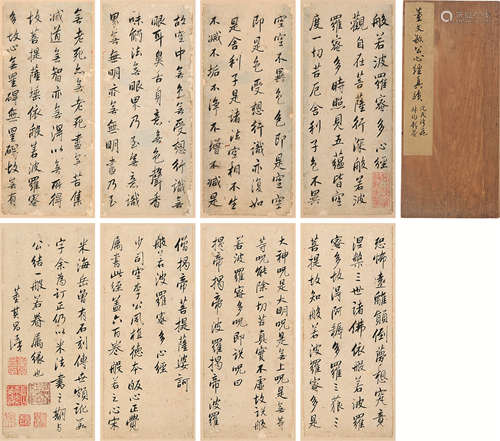 董文敏公心經真跡
般若波羅蜜多心經
觀自在菩薩行深般若波
羅蜜多時照見五蘊皆空
度一切苦厄舍利子色不異
空空不異色色即是空空
即是色受想行識亦復如
是舍利子是諸法空相不生
不滅不垢不淨不增不減是
故空中無色無受想行識無
眼耳鼻舌身意無色聲香
味觸法無眼界乃至無意識
界無無明亦無無明盡乃至
無老死亦無老死盡無苦集
滅道無智亦無得以無所得
故菩提薩埵依般若波羅蜜
多故心無罣礙無罣礙故無有
恐怖遠離顛倒夢想究竟
涅槃三世諸佛依般若波羅
蜜多故得阿耨多羅三藐三
菩提故知般若波羅蜜多是
大神咒是大明咒是無上咒是無等
等咒能除一切苦真實不虛故說般
若波羅蜜多咒即說咒曰
揭帝揭帝波羅揭帝波羅
僧揭帝菩提薩婆訶
般若波羅蜜多心經
司空李公
屬書此經蓋六百卷般若之心宋
米海岳曾有石刻傳世頗訛
字余為訂仍以米法書之
公結一般若眷屬緣也
董其昌